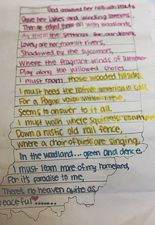 God crowned her hills with beauty,
Gave her lakes and winding streams,
Then He edged them all with woodlands,
As the settings for our dreams.
Lovely are her moonlit rivers,
Shadowed by the sycamores,
Where the fragrant winds of Summer
Play along the willowed shores.
I must roam those wooded hillsides,
I must heed the native call,
For a Pagan voice within me
Seems to answer to it all.
I must walk where squirrels scamper
Down a rustic old rail fence,
Where a choir of birds are singing,
In the woodland... green and dence.
I must learn more of my homeland,
For it's paradise to me,
There's no heaven quite as
peaceful